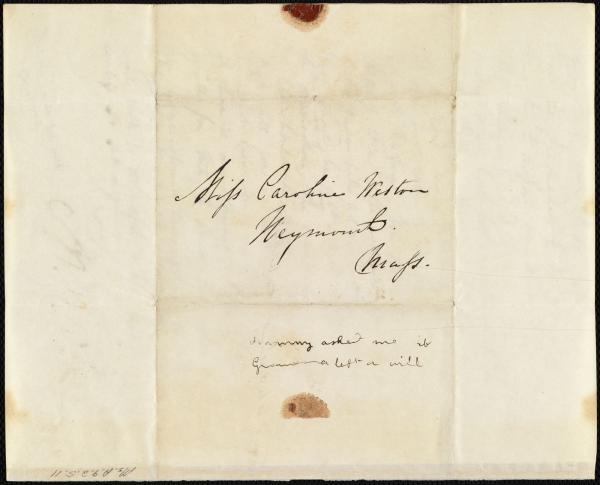 Miss Caroline Weston
Weymouth.
Mass.
asked me if
Grandma left a will
Ms.A.9.2.5.11